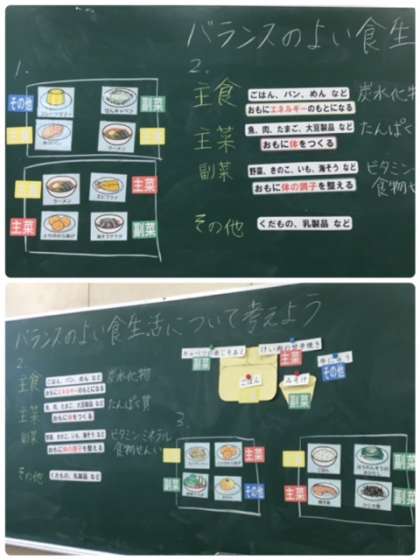 バランスのよい食生
1.
その他
副菜
ラーメン
主菜
ラーメン
エビフライ
主菜
副菜
2.
主食
ごはん、パン、めん など
炭水化物
おもにエネルギーのもとになる
主菜
魚、肉、たまご、大豆製品 など
たんぱく
おもに体をつくる
副菜
野菜、きのこ、いも、海そう など
ビタミン
おもに体の調子を整える
食物せ
その他
くだもの、乳製品 など
バランスのよい食生活について考えよう
2.
主食
ごはん、パン、めん など
炭水化物
おもにエネルギーのもとになる
主菜
魚、肉、たまご、大豆製品 など
たんぱく質
おもに体をつくる
副菜
野菜、きのこ、いも、海そう など
ビタミン ミネラル
おもに体の調子を整える
食物せんい
その他
くだもの、乳製品 など
副菜
主菜
その他
ごはん
みそ汁
副菜
3.
主菜
副菜
その他
ごはん
主菜
副菜